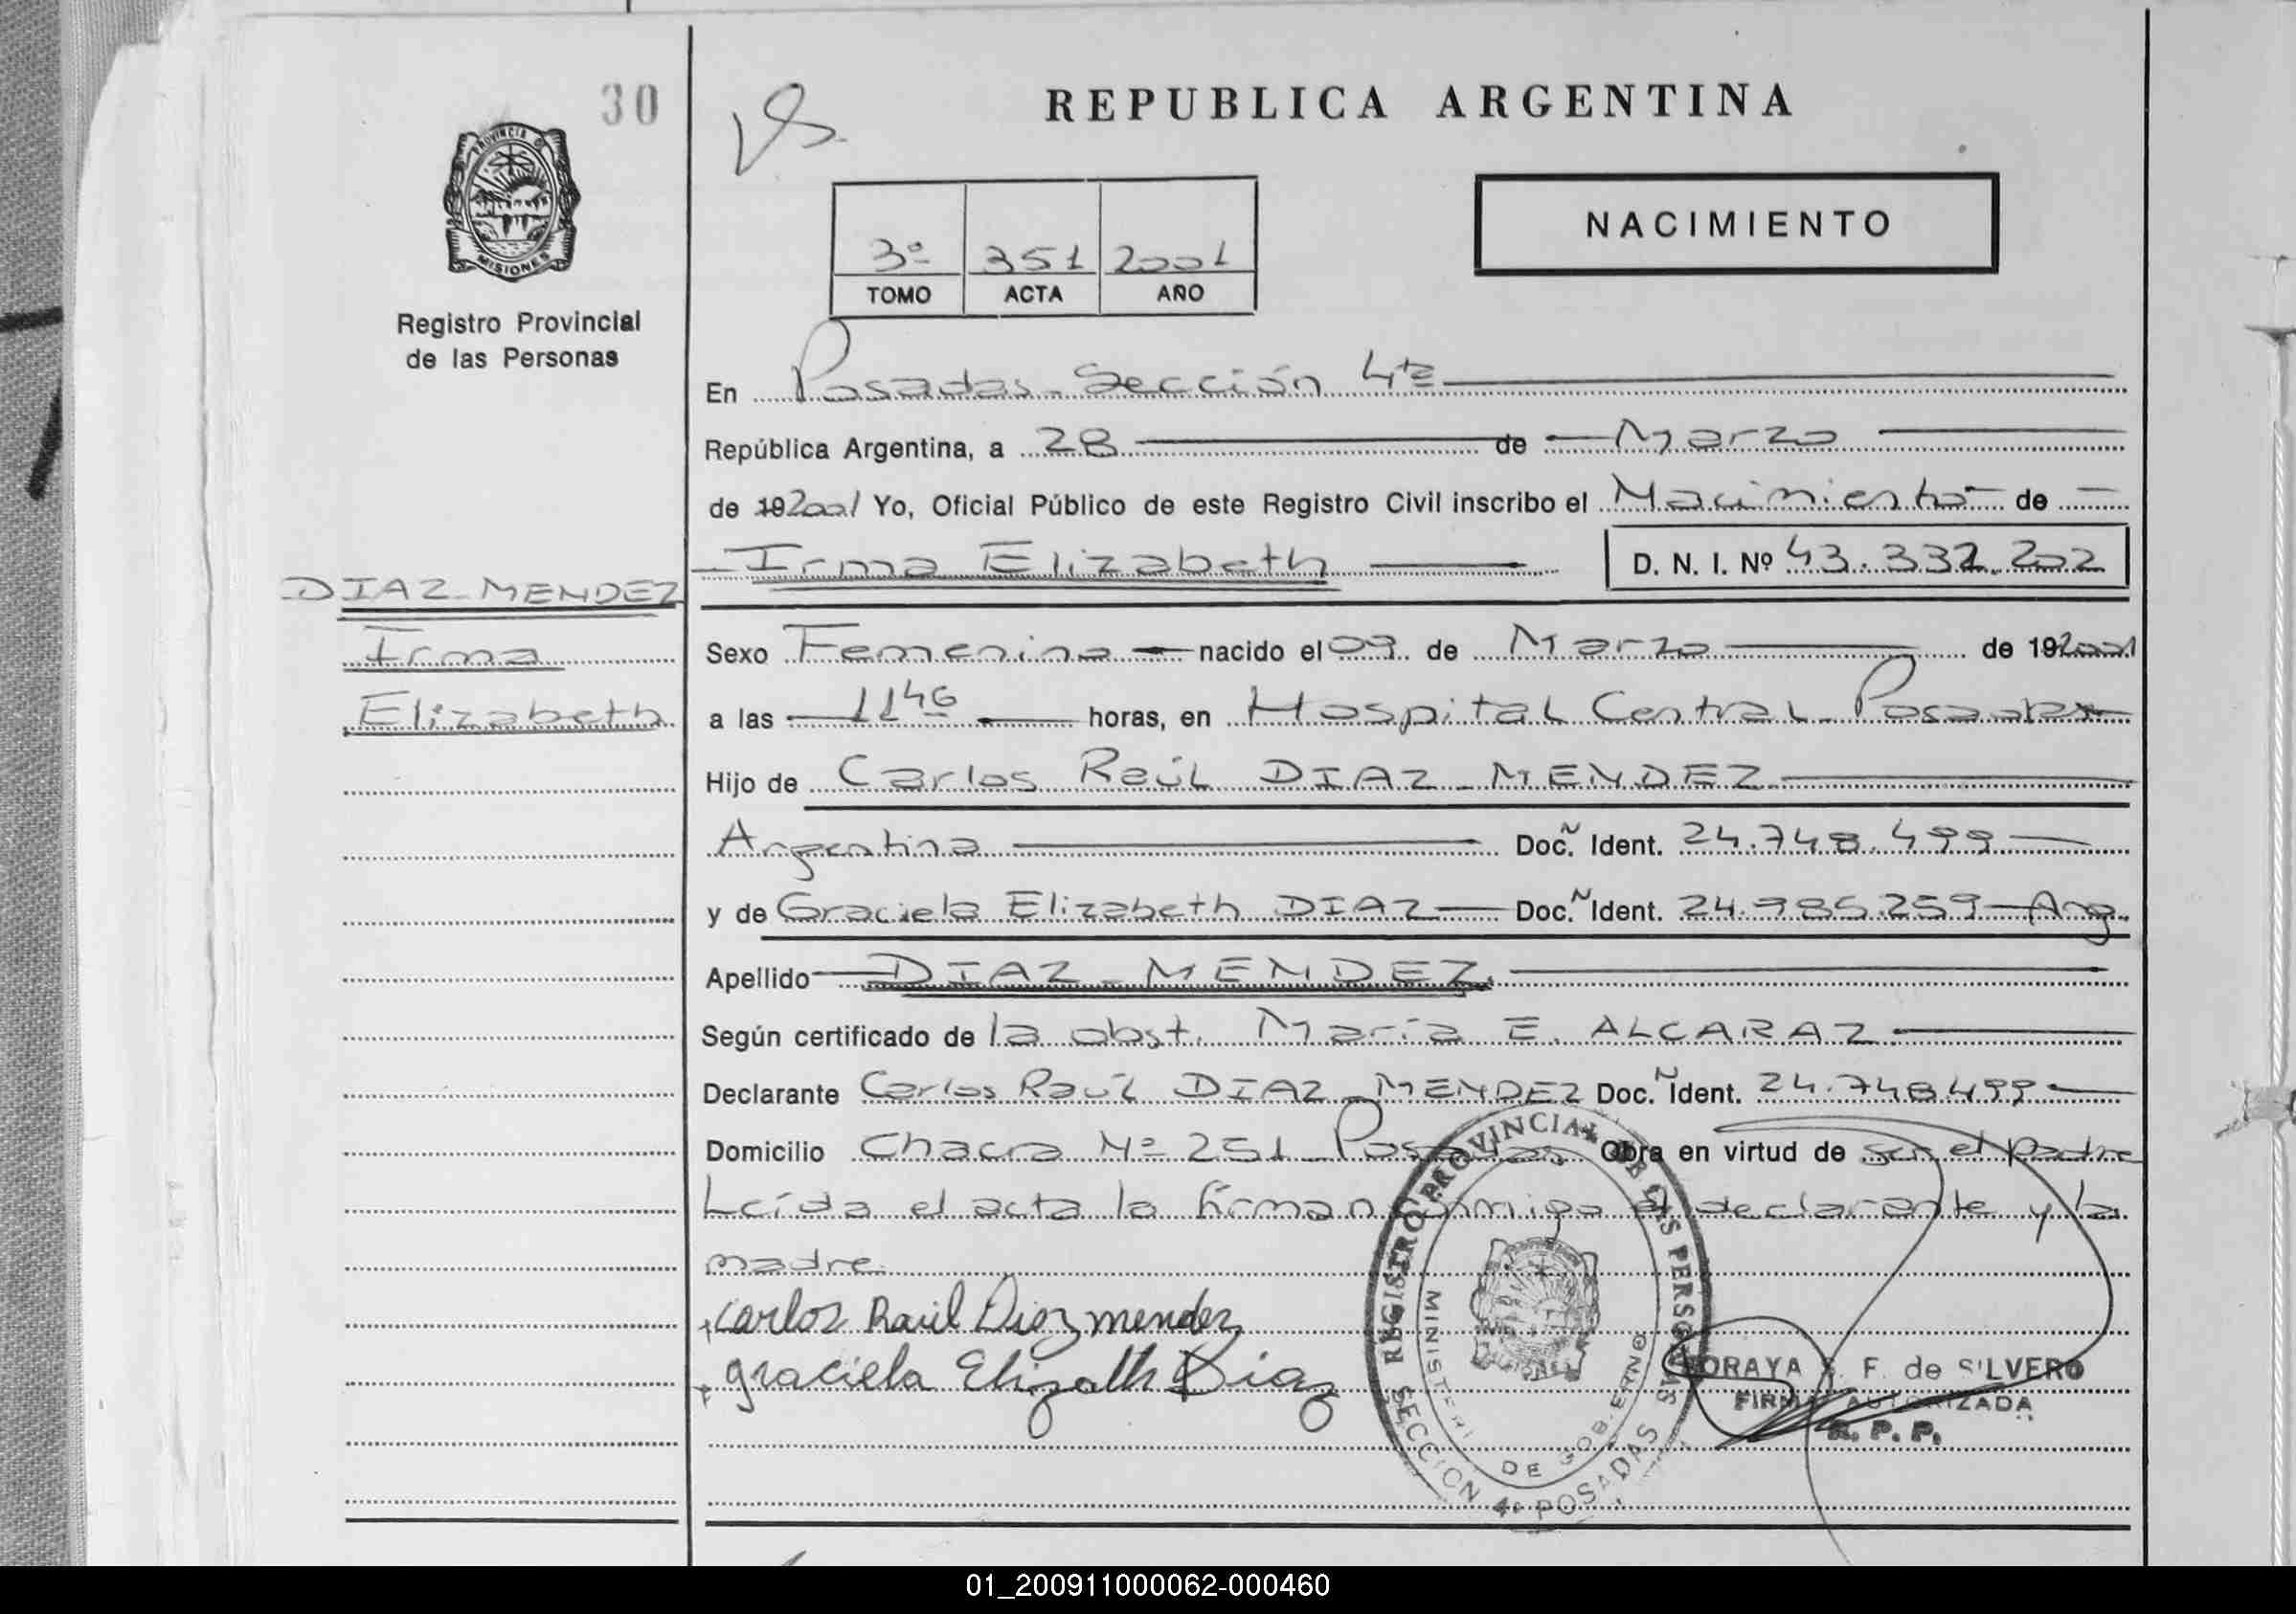 30
REPUBLICA ARGENTINA
PROVINCIA DE
MISIONES
Registro Provincial
de las Personas
NACIMIENTO
3º 351 2001
TOMO ACTA AÑO
En Posadas - Sección 4ta
República Argentina, a 28 de Marzo
de 192001 Yo, Oficial Público de este Registro Civil inscribo el Nacimiento de
Irma Elizabeth D. N. I. Nº 43.332.202
DIAZ-MENDEZ
Irma
Elizabeth
Sexo Femenino nacido el 09 de Marzo de 192001
a las 11 46 horas, en Hospital Central Posadas
Hijo de Carlos Raúl DIAZ - MENDEZ
Argentina Doc. Ident. 24.748.499
y de Graciela Elizabeth DIAZ Doc. Ident. 24.985.259 - Arg.
Apellido DIAZ - MENDEZ
Según certificado de la obst. María E. ALCARAZ
Declarante Carlos Raúl DIAZ - MENDEZ Doc. Ident. 24.748.499
Domicilio Chacra Nº 251 Posadas Obra en virtud de ser el padre
Leída el acta la firman conmigo el declarante y la
madre.
Carlos Raúl Diaz mendez
graciela Elizabeth Diaz
REGISTRO PROVINCIAL DE LAS PERSONAS
MINISTERIO DE GOBIERNO
SECCION 4º POSADAS
SORAYA F. de SILVERO
FIRMA AUTORIZADA
R. P. P.
01_200911000062-000460